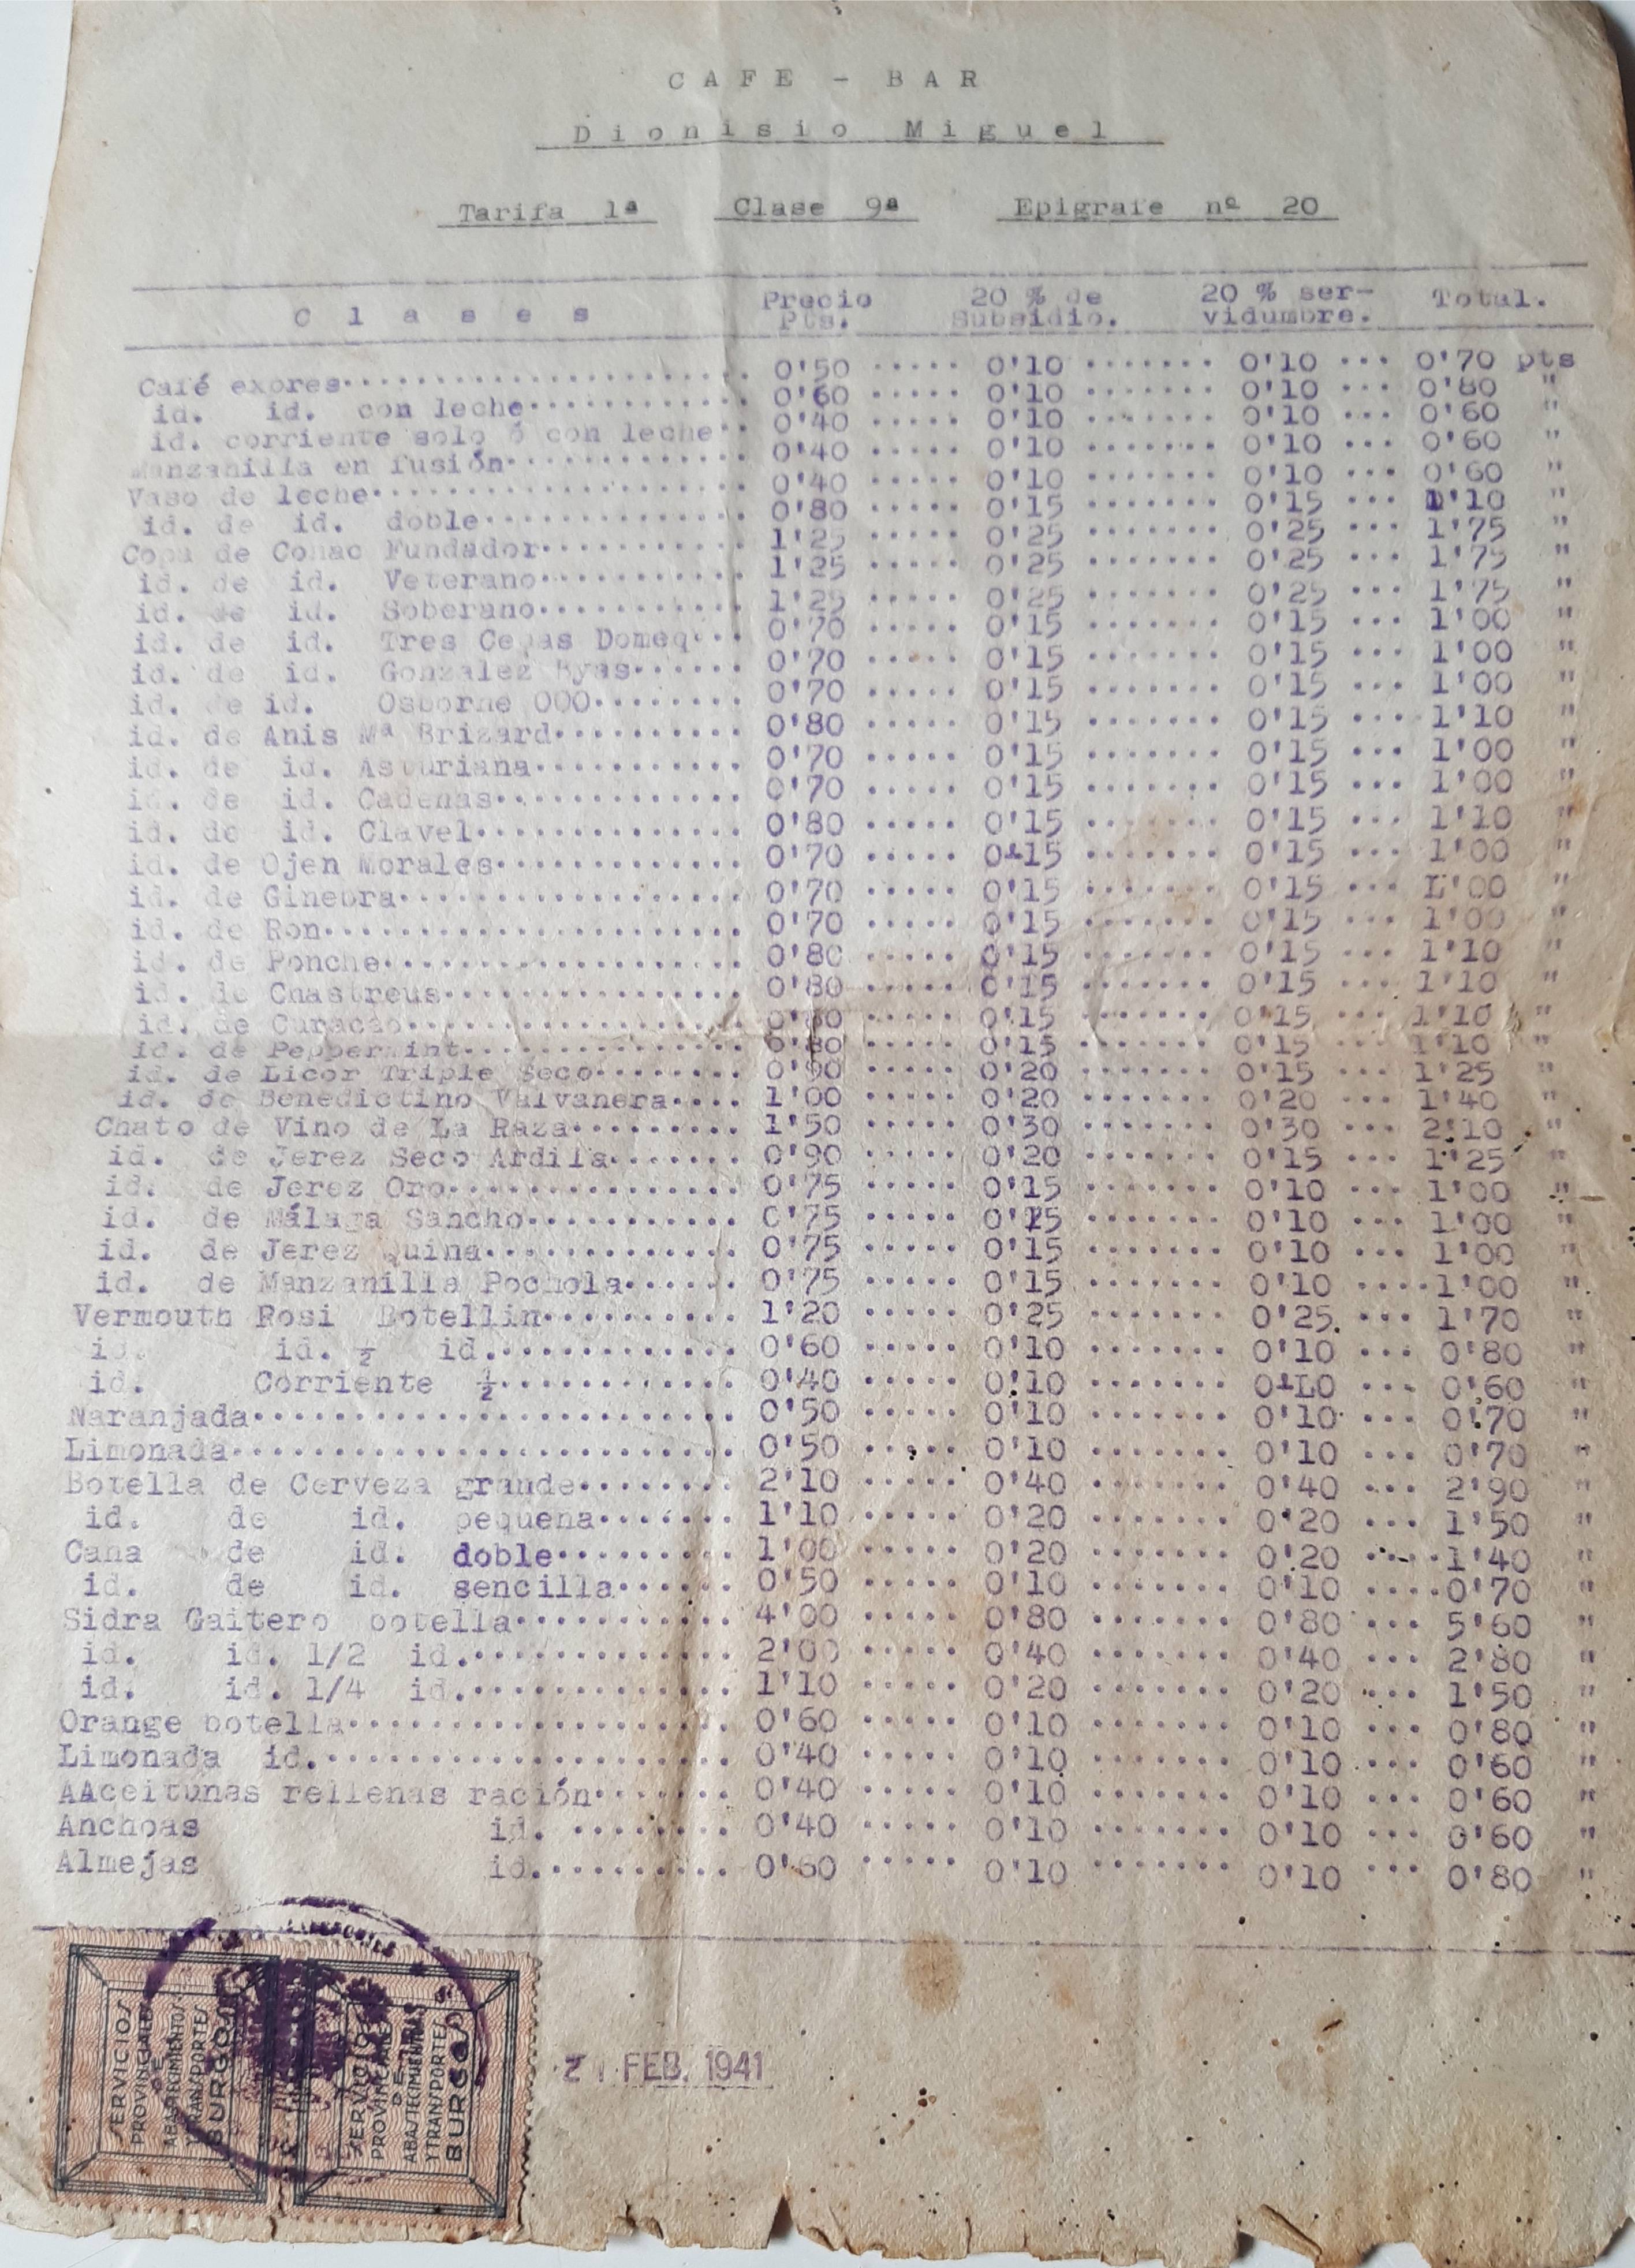 CAFE - BAR
Dionisio Miguel
Tarifa 1ª Clase 9ª Epigrafe nº 20
Clases Precio Pts. 20 % de Subsidio. 20 % servidumbre. Total.
Café expres 0'50 0'10 0'10 0'70 pts
id. id. con leche 0'60 0'10 0'10 0'80 "
id. corriente solo ó con leche 0'40 0'10 0'10 0'60 "
Manzanilla en fusión 0'40 0'10 0'10 0'60 "
Vaso de leche 0'40 0'10 0'10 0'60 "
id. de id. doble 0'80 0'15 0'15 1'10 "
Copa de Conac Fundador 1'25 0'25 0'25 1'75 "
id. de id. Veterano 1'25 0'25 0'25 1'75 "
id. de id. Soberano 1'25 0'25 0'25 1'75 "
id. de id. Tres Cepas Domeq 0'70 0'15 0'15 1'00 "
id. de id. Gonzalez Byas 0'70 0'15 0'15 1'00 "
id. de id. Osborne OOO 0'70 0'15 0'15 1'00 "
id. de Anis Mª Brizard 0'80 0'15 0'15 1'10 "
id. de id. Asturiana 0'70 0'15 0'15 1'00 "
id. de id. Cadenas 0'70 0'15 0'15 1'00 "
id. de id. Clavel 0'80 0'15 0'15 1'10 "
id. de Ojen Morales 0'70 0'15 0'15 1'00 "
id. de Ginebra 0'70 0'15 0'15 L'00 "
id. de Ron 0'70 0'15 0'15 1'00 "
id. de Ponche 0'80 0'15 0'15 1'10 "
id. de Chastreus 0'80 0'15 0'15 1'10 "
id. de Curacao 0'80 0'15 0'15 1'10 "
id. de Peppermint 0'80 0'15 0'15 1'10 "
id. de Licor Triple Seco 0'90 0'20 0'15 1'25 "
id. de Benedictino Valvanera 1'00 0'20 0'20 1'40 "
Chato de Vino de La Raza 1'50 0'30 0'30 2'10 "
id. de Jerez Seco Ardilla 0'90 0'20 0'15 1'25 "
id. de Jerez Oro 0'75 0'15 0'10 1'00 "
id. de Málaga Sancho 0'75 0'15 0'10 1'00 "
id. de Jerez Quina 0'75 0'15 0'10 1'00 "
id. de Manzanilla Pochola 0'75 0'15 0'10 1'00 "
Vermouth Rosi Botellin 1'20 0'25 0'25 1'70 "
id. id. ½ id. 0'60 0'10 0'10 0'80 "
id. Corriente ½ 0'40 0'10 0'L0 0'60 "
Naranjada 0'50 0'10 0'10 0'70 "
Limonada 0'50 0'10 0'10 0'70 "
Botella de Cerveza grande 2'10 0'40 0'40 2'90 "
id. de id. pequena 1'10 0'20 0'20 1'50 "
Cana de id. doble 1'00 0'20 0'20 1'40 "
id. de id. sencilla 0'50 0'10 0'10 0'70 "
Sidra Gaitero botella 4'00 0'80 0'80 5'60 "
id. id. 1/2 id. 2'00 0'40 0'40 2'80 "
id. id. 1/4 id. 1'10 0'20 0'20 1'50 "
Orange botella 0'60 0'10 0'10 0'80 "
Limonada id. 0'40 0'10 0'10 0'60 "
AAceitunas rellenas ración 0'40 0'10 0'10 0'60 "
Anchoas id. 0'40 0'10 0'10 0'60 "
Almejas id. 0'60 0'10 0'10 0'80 "
21 FEB. 1941
SERVICIOS
PROVINCIALES
DE
ABASTECIMIENTOS
Y TRANSPORTES
BURGOS
SERVICIOS
PROVINCIALES
DE
ABASTECIMIENTOS
Y TRANSPORTES
BURGOS